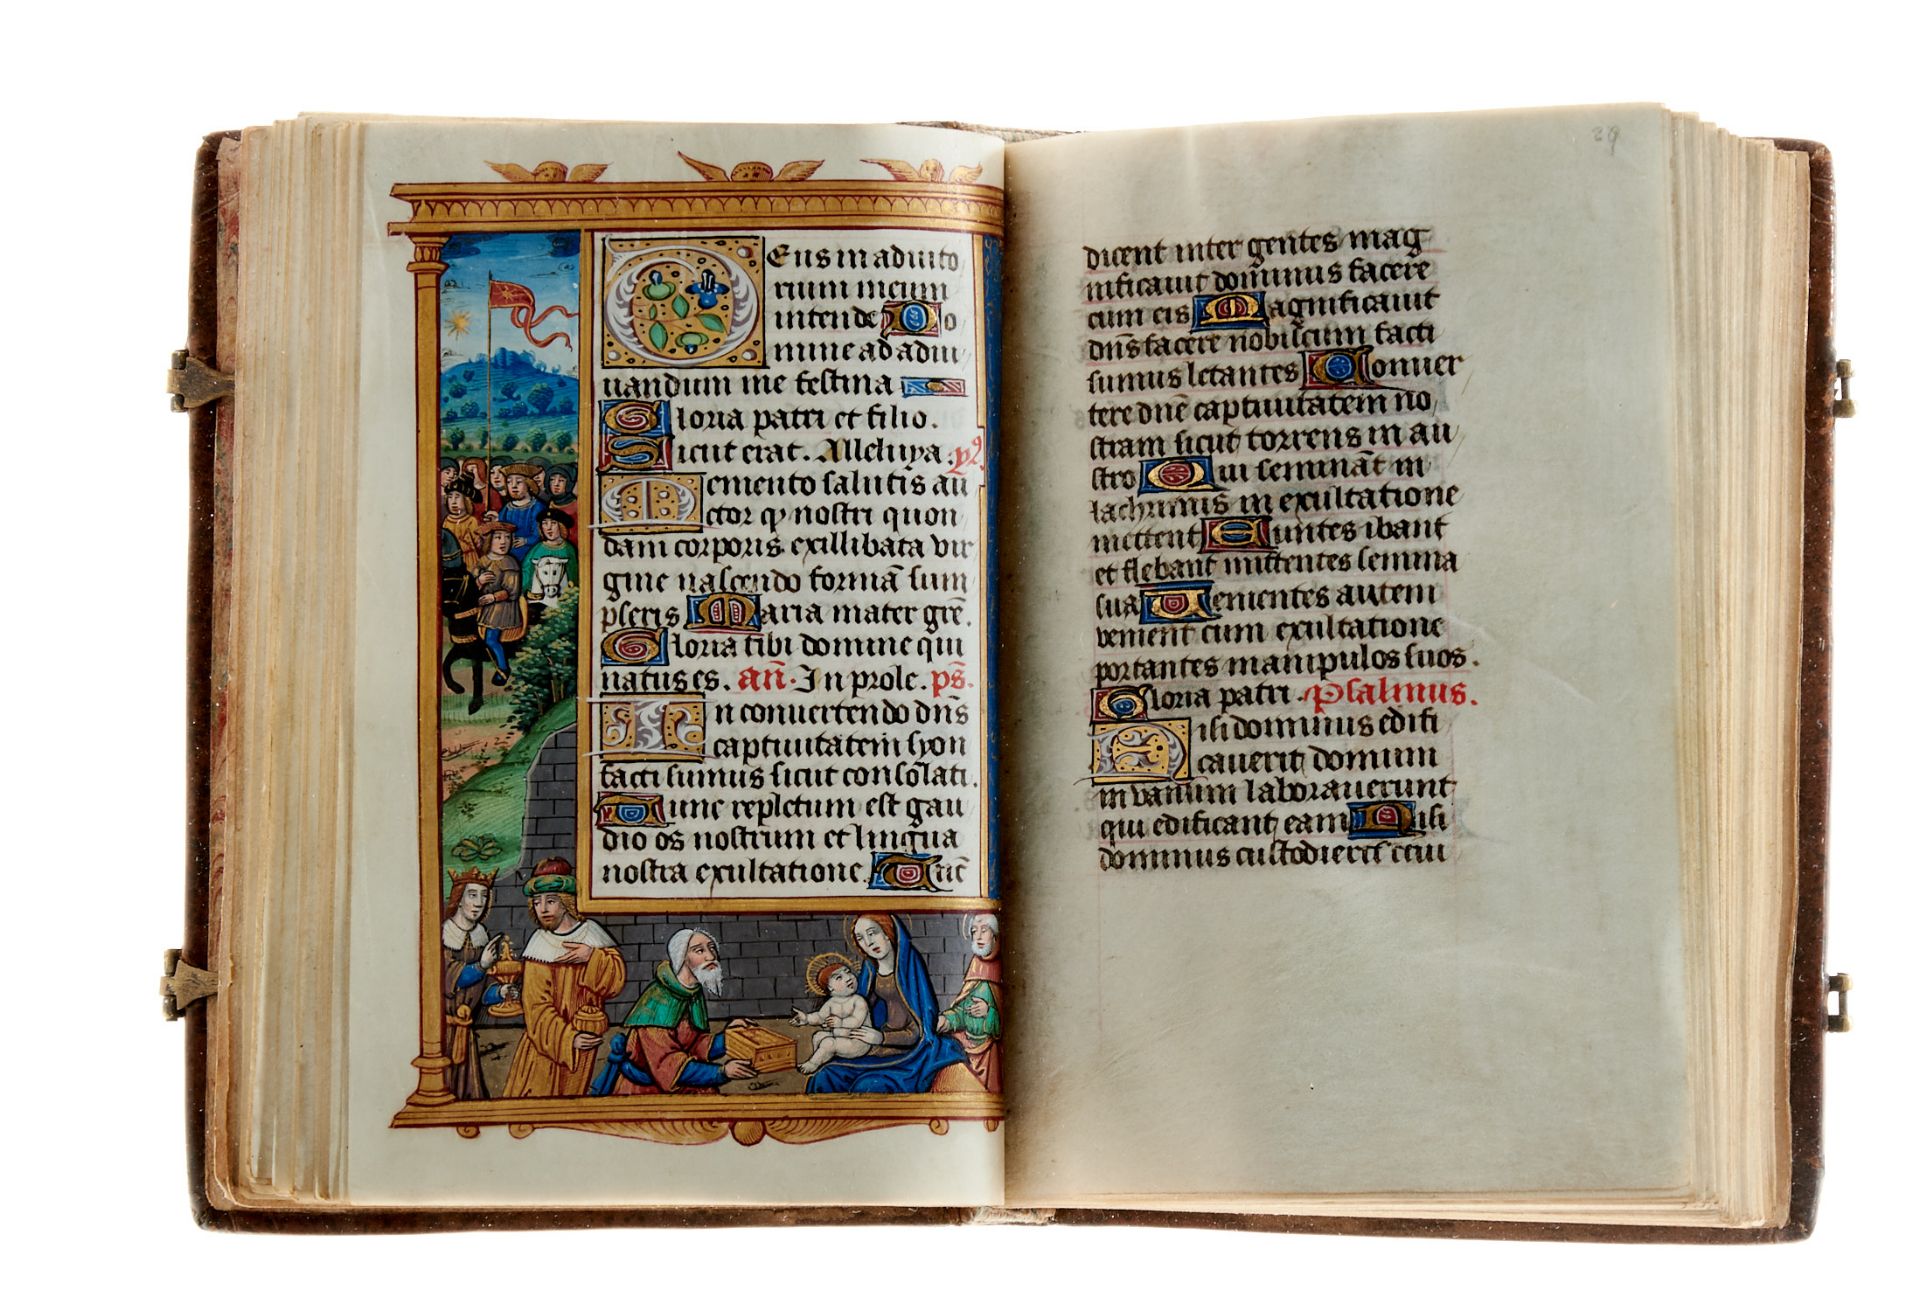 Eus in adiuto
rium meum
intende Do
mine ad adiu
uandum me festina
Gloria patri et filio.
Sicut erat. Alleluya. ps.
Memento salutis au
ctor qp nostri quon
dam corporis. exillibata vir
gine nascendo formā sum
pseris Maria mater grē.
Gloria tibi domine qui
natus es. añ. In prole. ps̄.
In conuertendo dn̄s
captiuitatem syon
facti sumus sicut consolati.
Tunc repletum est gau
dio os nostrum et lingua
nostra exultatione. Tūc
29
dicent inter gentes mag
nificauit dominus facere
cum eis Magnificauit
dn̄s facere nobiscum facti
sumus letantes Conuer
tere dn̄e captiuitatem no
stram sicut torrens in au
stro Qui semināt in
lachrimis in exultatione
mettent Euntes ibant
et flebant mittentes semina
sua Uenientes autem
venient cum exultatione
portantes manipulos suos.
Gloria patri. Psalmus.
Nisi dominus edifi
cauerit domum
in vanum laborauerunt
qui edificant eam Nisi
dominus custodierit ciui